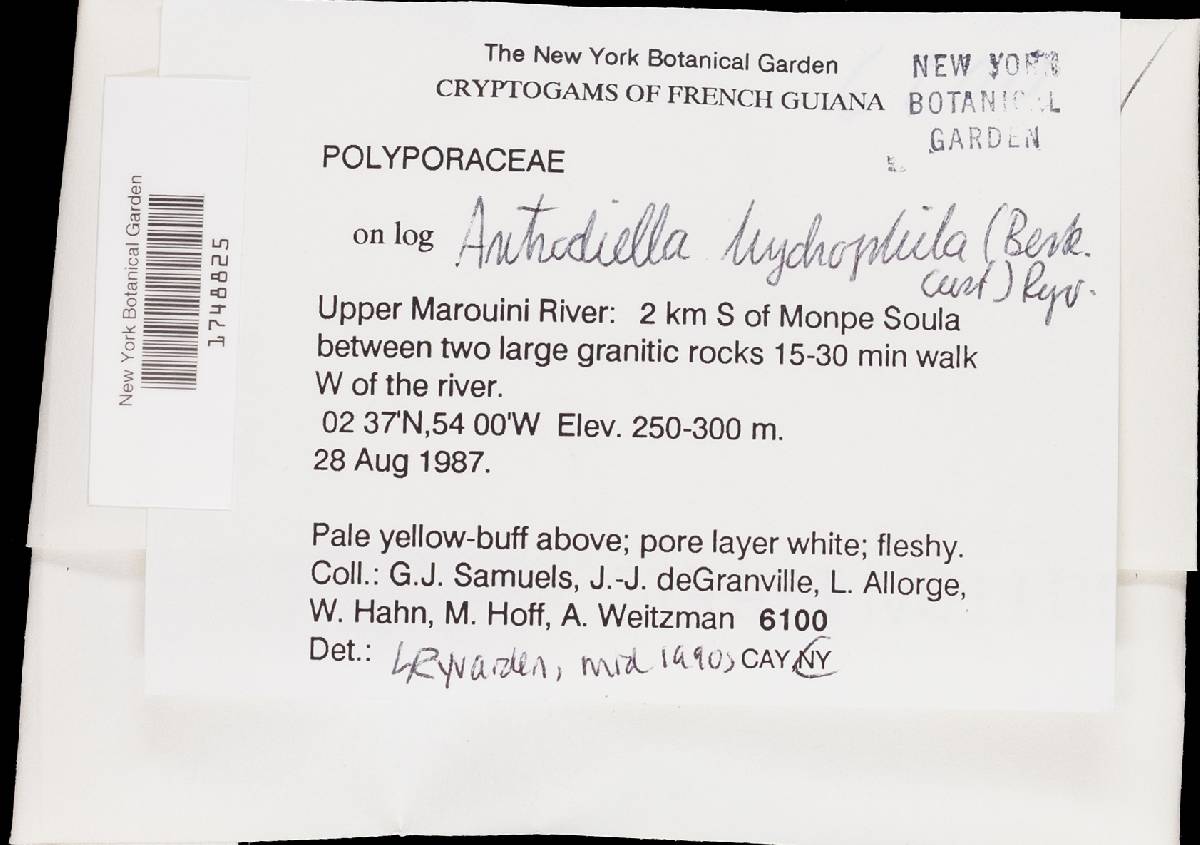 The New York Botanical Garden
CRYPTOGAMS OF FRENCH GUIANA
NEW YORK
BOTANICAL
GARDEN
POLYPORACEAE
on log Antrodiella hydrophila (Berk.
Curt) Ryv.
Upper Marouini River: 2 km S of Monpe Soula
between two large granitic rocks 15-30 min walk
W of the river.
02 37'N,54 00'W Elev. 250-300 m.
28 Aug 1987.
Pale yellow-buff above; pore layer white; fleshy.
Coll.: G.J. Samuels, J.-J. deGranville, L. Allorge,
W. Hahn, M. Hoff, A. Weitzman 6100
Det.: LRyvarden, mid 1990s CAY,NY
New York Botanical Garden
1748825